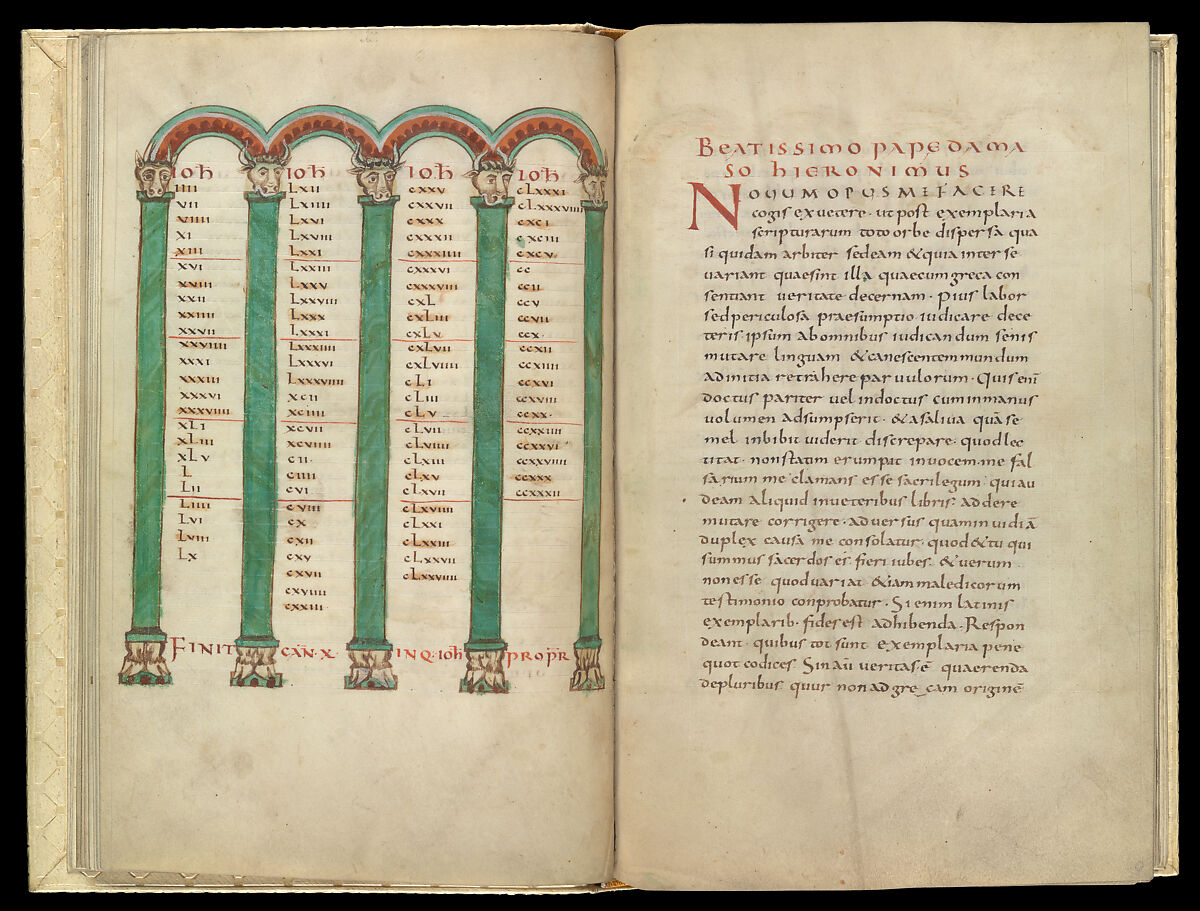 IOħ
IIII
VII
VIIII
XI
XIII
XVI
XVIII
XXII
XXIIII
XXVII
XXVIIII
XXXI
XXXIII
XXXVI
XXXVIIII
XLI
XLIII
XLV
L
LII
LIIII
LVI
LVIII
LX
IOħ
LXII
LXIIII
LXVI
LXVIII
LXXI
LXXIII
LXXV
LXXVIII
LXXX
LXXXI
LXXXIIII
LXXXVI
LXXXVIIII
XCII
XCIIII
XCVII
XCVIIII
CII
CIIII
CVI
CVIII
CX
CXII
CXV
CXVII
CXVIIII
CXXIII
IOħ
CXXV
CXXVII
CXXX
CXXXII
CXXXIIII
CXXXVI
CXXXVIII
CXL
CXLIII
CXLV
CXLVII
CXLVIIII
CLI
CLIII
CLV
CLVII
CLVIIII
CLXIII
CLXV
CLXVII
CLXVIIII
CLXXI
CLXXIII
CLXXVII
CLXXVIIII
IOħ
CLXXXI
CLXXXVIIII
CXCI
CXCIII
CXCV
CC
CCII
CCV
CCVII
CCX
CCXII
CCXIIII
CCXVI
CCXVIII
CCXX
CCXXIIII
CCXXVI
CCXXVIIII
CCXXX
CCXXXII
FINIT CAN̄·X· IN Q·IOħ PROPR̄
BEATISSIMO PAPE DAMA
SO HIERONIMUS
NOUUM OPUS ME FACERE
cogis ex uetere· ut post exemplaria
scripturarum toto orbe dispersa qua
si quidam arbiter sedeam & quia inter se
uariant quae sint illa quae cum greca con
sentiant ueritate decernam· Pius labor
sed periculosa praesumptio· iudicare dece
teris ipsum ab omnibus iudicandum senis
mutare linguam & canescentem mundum
ad initia retrahere paruulorum· Quis enī
doctus pariter uel indoctus cum in manus
uolumen adsumpserit· & a saliua quā se
mel inbibit uiderit discrepare· quod lec
titat· non statim erumpat in uocem· me fal
sarium me clamans esse sacrilegum· qui au
deam aliquid in ueteribus libris· addere
mutare corrigere· aduersus quam inuidiā
duplex causa me consolatur· quod & tu qui
summus sacerdos es· fieri iubes· & uerum
non esse quod uariat· & iam maledicorum
testimonio conprobatur· Si enim latinis
exemplarib· fides est adhibenda· Respon
deant· quibus tot sunt exemplaria pene
quot codices· Sin aū ueritas ē quaerenda
de pluribus· quur non ad grecam originē